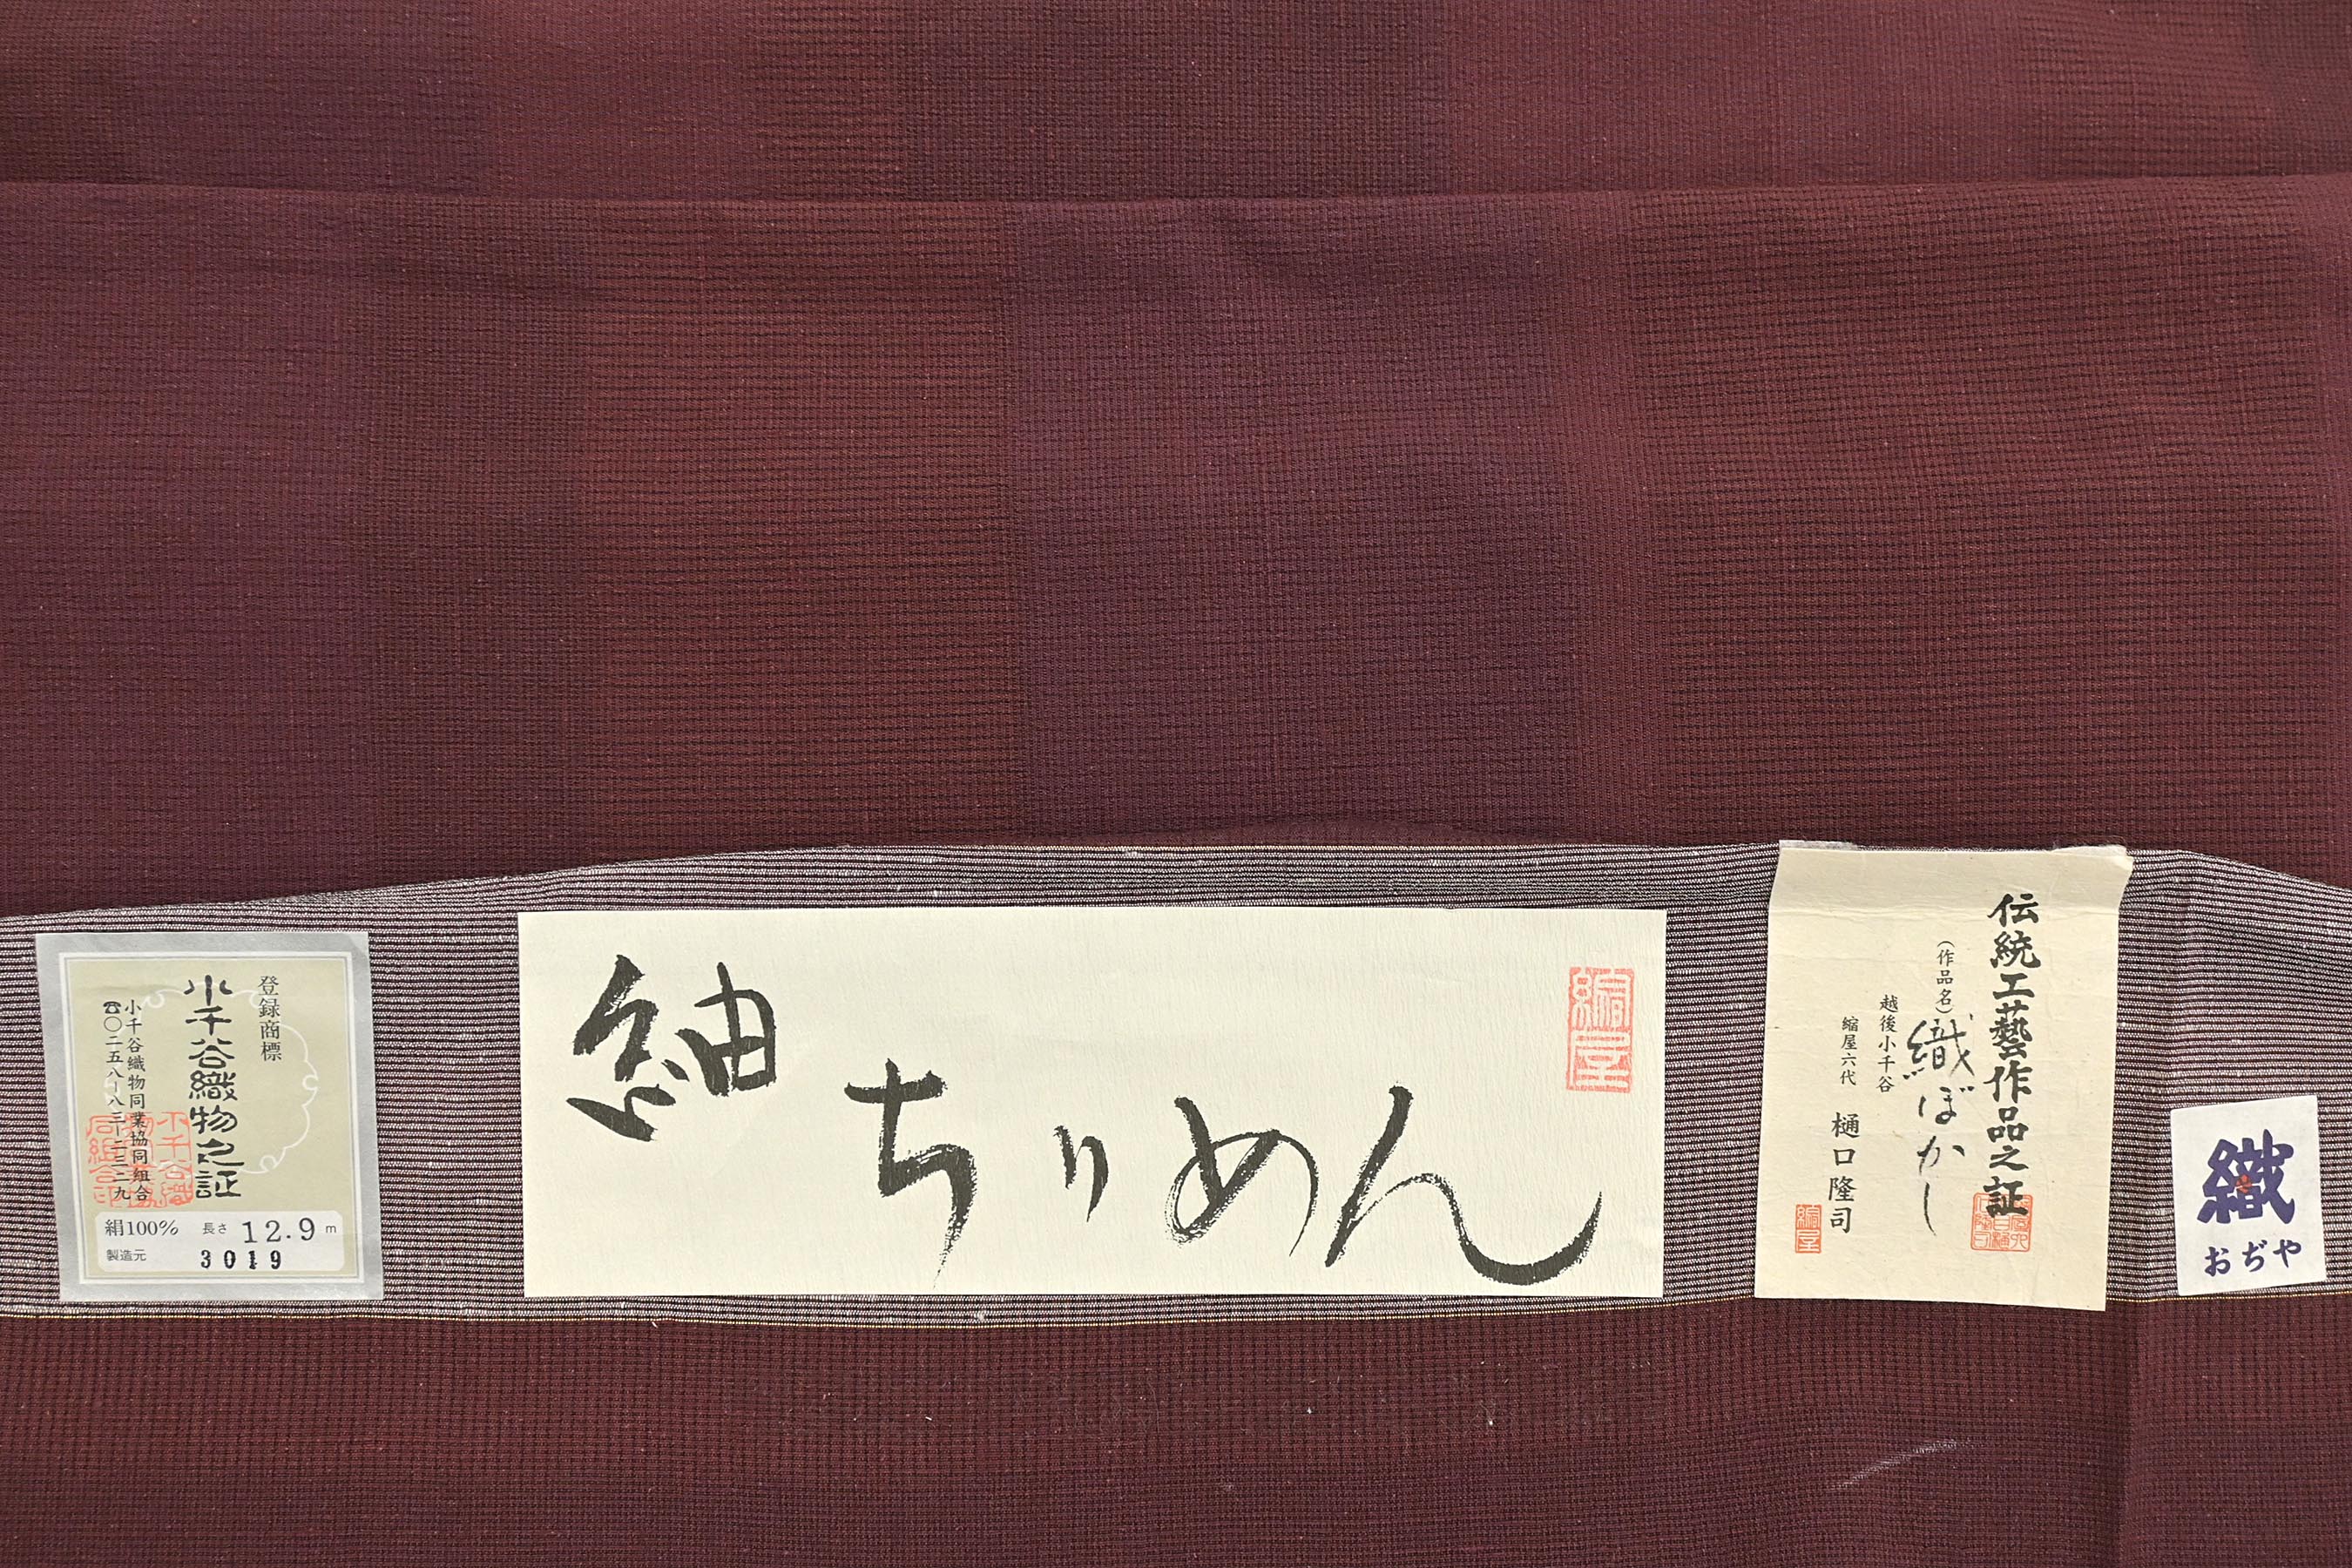 登録商標
小千谷織物之証
小千谷織物同業協同組合
☎〇二五八-八三-二三二九
絹100% 長さ 12.9 m
製造元 3019
紬
ちりめん
縮屋
伝統工藝作品之証
(作品名) 織ぼかし
越後小千谷
縮屋六代 樋口隆司
織
おぢや